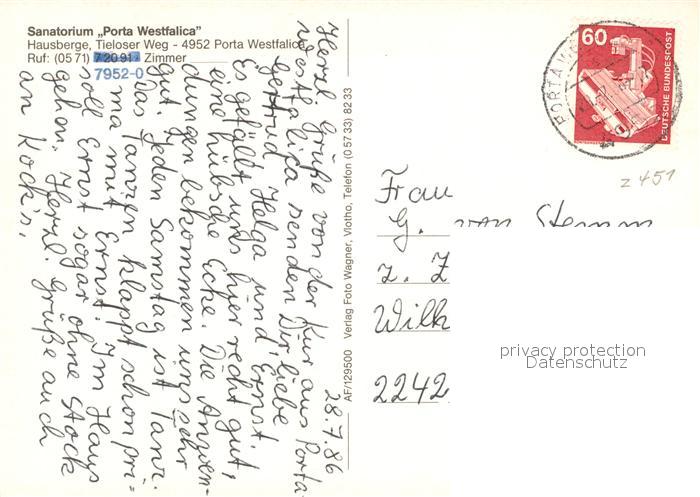 Sanatorium „Porta Westfalica"
Hausberge, Tieloser Weg - 4952 Porta Westfalica
Ruf: (05 71) 7 20 91 · Zimmer
7952-0
28.7.86
Herzl. Grüße von der Kur aus Porta-
Westfalica senden Dir, liebe
Gertrud, Helga und Ernst.
Es gefällt uns hier recht gut,
eine hübsche Ecke. Die Anwen-
dungen bekommen uns sehr
gut. Jeden Samstag ist Tanz.
Das Tanzen klappt schon pri-
ma mit Ernst. Im Haus
soll Ernst sogar ohne Stock
gehen. Herzl. Grüße auch
an Kock's.
AF/129500 Verlag Foto Wagner, Vlotho, Telefon (0 57 33) 82 33
60
DEUTSCHE BUNDESPOST
PORTA W
z 451
Frau
G. von Stemm
z. Z
Wilh
2242
privacy protection
Datenschutz